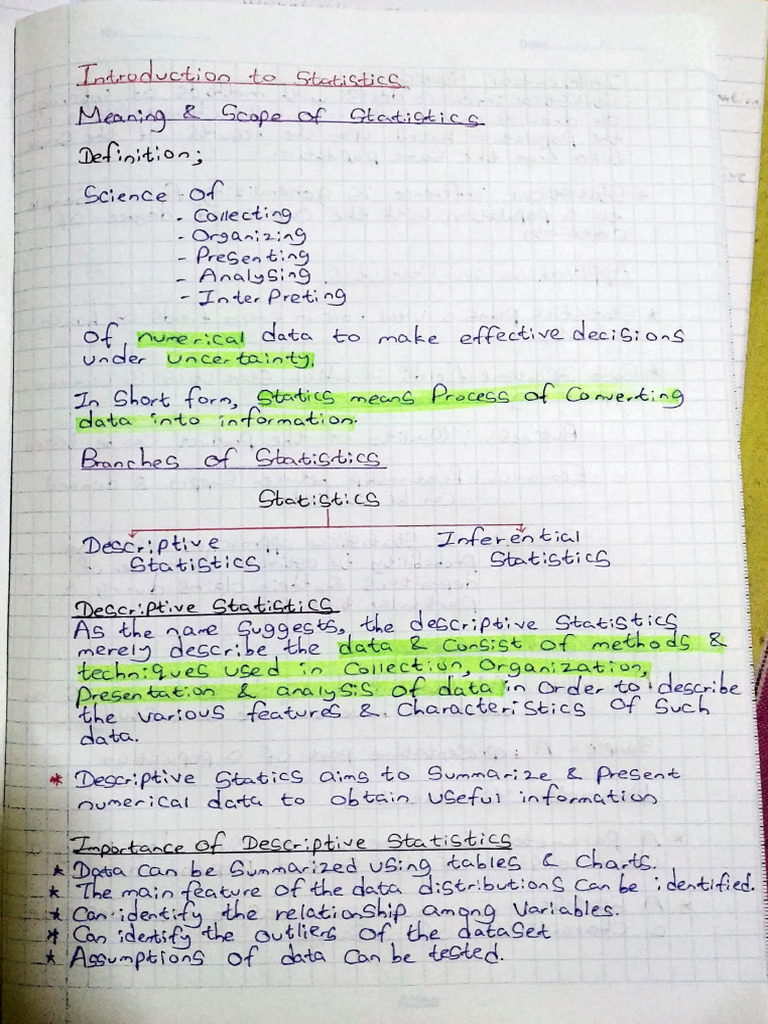 Introduction to Statistics
Meaning & Scope of Statistics
Definition;
Science of
- Collecting
- Organizing
- Presenting
- Analysing
- Inter Preting
Of numerical data to make effective decisions
under uncertainty.
In Short form, Statics means Process of Converting
data into information.
Branches of Statistics
Statistics
Descriptive Inferential
Statistics Statistics
Descriptive Statistics
As the name Suggests, the descriptive Statistics
merely describe the data & Consist of methods &
techniques used in Collection, Organization,
Presentation & analysis of data in order to describe
the various features & Characteristics of Such
data.
* Descriptive Statics aims to Summarize & Present
numerical data to obtain useful information
Importance of Descriptive Statistics
* Data can be Summarized using tables & Charts.
* The main feature of the data distributions Can be identified.
* Can identify the relationship among Variables.
* Can identify the outliers of the dataset
* Assumptions of data Can be tested.